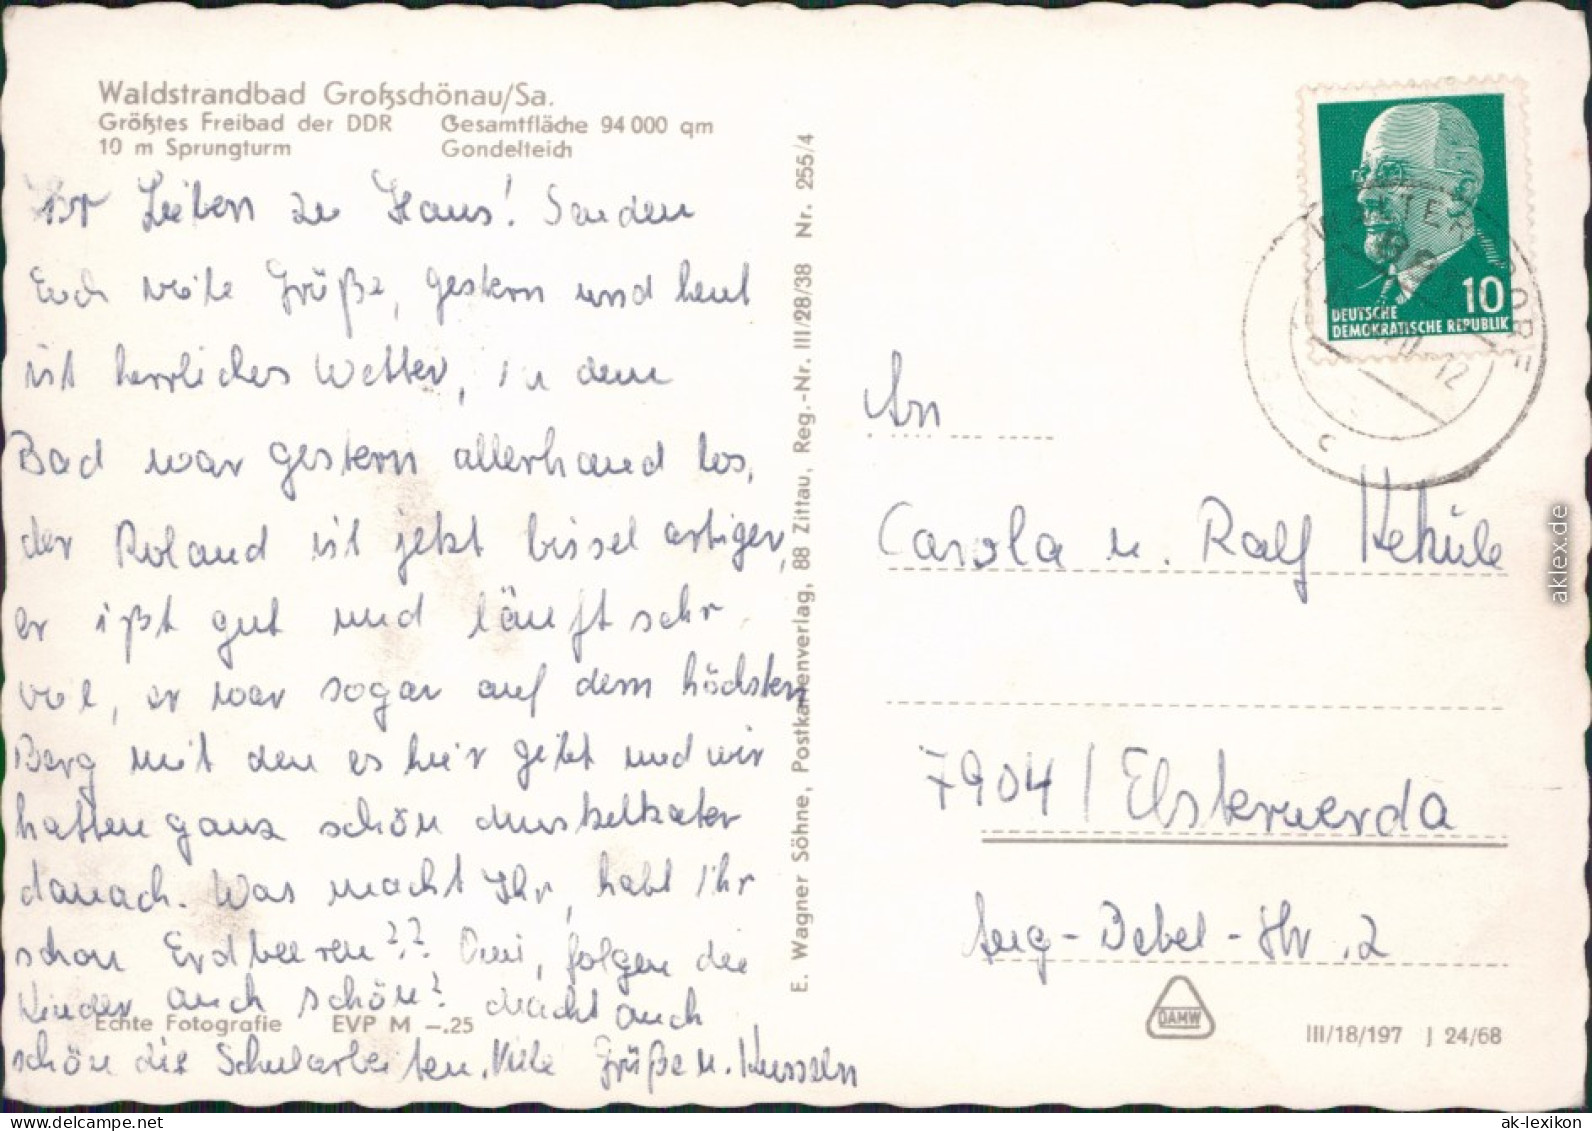 Waldstrandbad Großschönau/Sa.
Größtes Freibad der DDR Gesamtfläche 94 000 qm
10 m Sprungturm Gondelteich
Ihr Lieben zu Haus! Senden
Euch viele Grüße, gestern und heut
ist herrliches Wetter, in dem
Bad war gestern allerhand los,
der Roland ist jetzt bissel artiger,
er ißt gut und läuft sehr
viel, er war sogar auf dem höchsten
Berg mit den es hier gibt und wir
hatten ganz schön Muskelkater
danach. Was macht Ihr, habt Ihr
schon Erdbeeren?? Omi, folgen die
Kinder auch schön? Macht auch
Echte Fotografie EVP M –.25
schön die Schularbeiten. Viele Grüße u. Küsseln
E. Wagner Söhne, Postkartenverlag, 88 Zittau, Reg.-Nr. III/28/38 Nr. 255/4
10
DEUTSCHE
DEMOKRATISCHE REPUBLIK
12
c
An
Carola u. Ralf Kekùle
7904 / Elsterwerda
Aug-Bebel-Str. 2
DAMW
III/18/197 J 24/68
aklex.de
www.ansichtskarten-lexikon.de
ak-lexikon